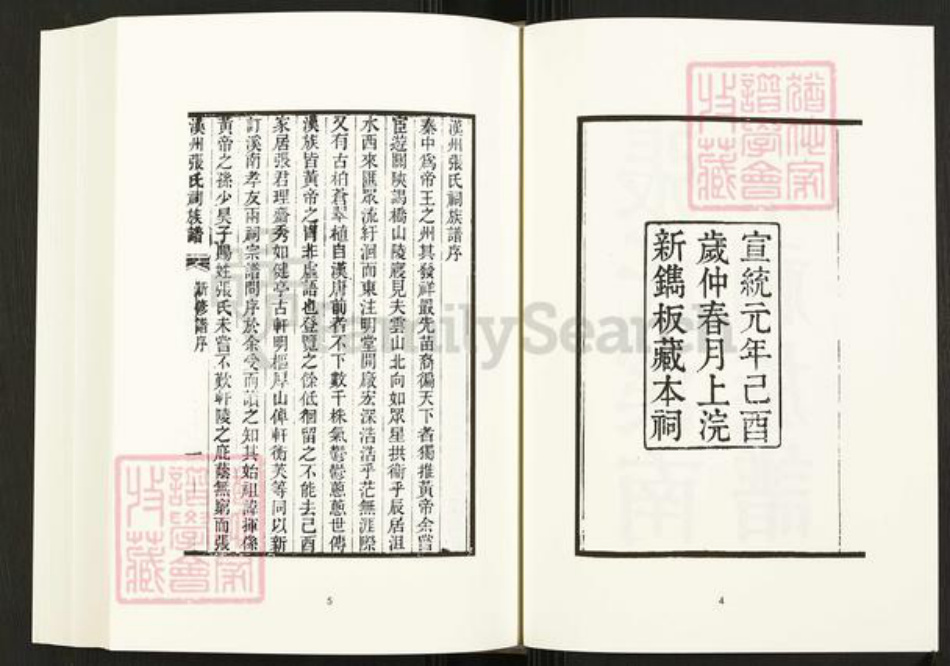 宣統元年己酉
歲仲春月上浣
新鐫板藏本祠
4
漢州張氏祠族譜序
秦中為帝王之州其發祥最先苗裔徧天下者獨推黃帝余嘗
宦遊關陝謁橋山陵寢見夫雲山北向如眾星拱衛乎辰居沮
水西來匯眾流紆洄而東注明堂開廠宏深浩浩乎茫無涯際
又有古柏蒼翠植自漢唐前者不下數千株氣鬱鬱蔥蔥世傳
漢族皆黃帝之冑非虛語也登覽之餘低徊留之不能去己酉
家居張君理齋秀如健亭古軒明樞厚山倬軒衡芙等同以新
訂溪南孝友兩祠宗譜問序於余受而讀之知其始祖諱揮係
黃帝之孫少昊子賜姓張氏未嘗不歎軒陵之庇蔭無窮而張
漢州張氏祠族譜
新修譜序
一
5
FamilySearch
譜學會
收藏
譜學會
收藏